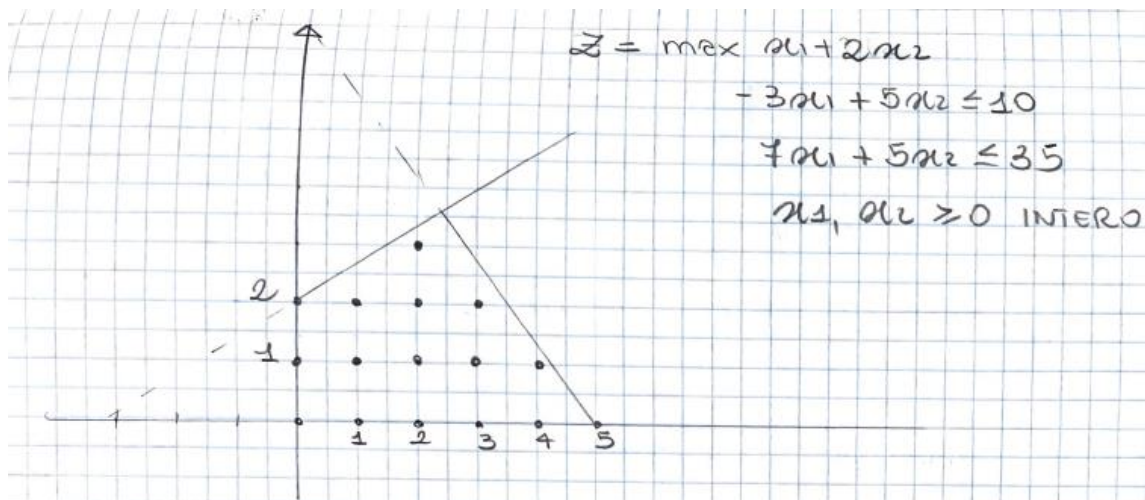 Z = max x1 + 2x2
-3x1 + 5x2 ≤ 10
7x1 + 5x2 ≤ 35
x1, x2 ≥ 0 INTERO
2
1
1 2 3 4 5